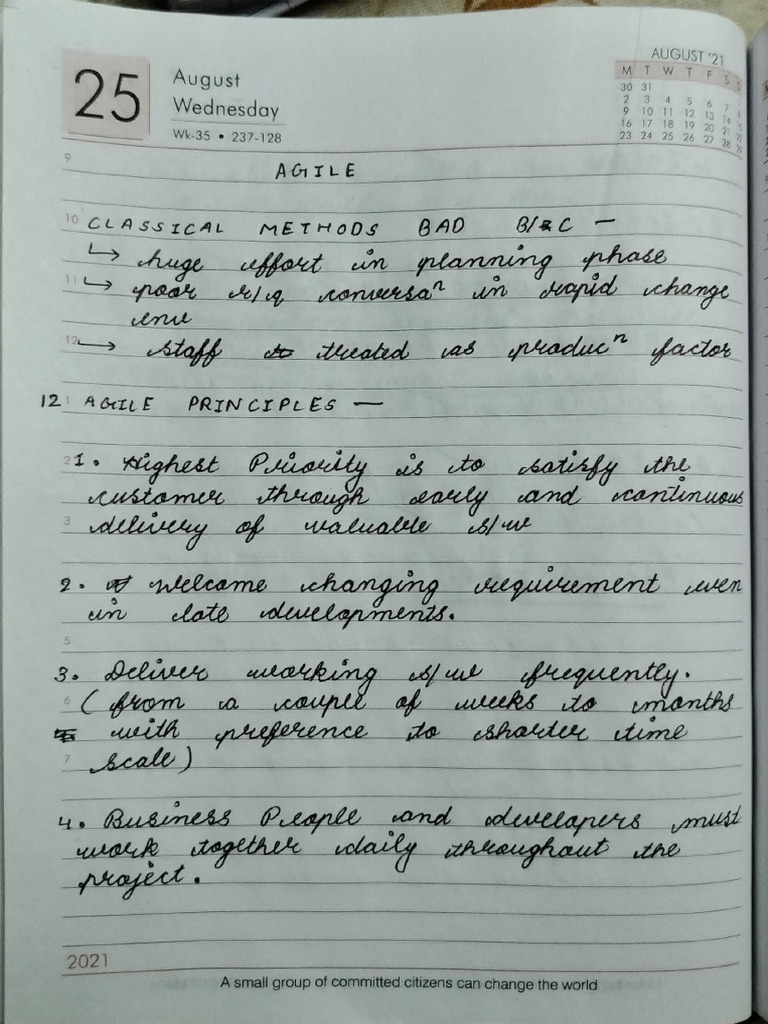 25
August
Wednesday
Wk-35 • 237-128
AUGUST '21
M T W T F S S
30 31
2 3 4 5 6 7 8
9 10 11 12 13 14 15
16 17 18 19 20 21 22
23 24 25 26 27 28 29
9
AGILE
10 CLASSICAL METHODS BAD B/C —
↳ huge effort in planning phase
11 ↳ poor r/q conversaⁿ in rapid change
env
12 → staff treated as producⁿ factor
12 1 AGILE PRINCIPLES —
2 1. Highest Priority is to satisfy the
customer through early and continuous
3 delivery of valuable s/w
2. Welcome changing requirement even
in late developments.
5
3. Deliver working s/w frequently.
6 (from a couple of weeks to months
with preference to shorter time
7 scale)
4. Business People and developers must
work together daily throughout the
project.
2021
A small group of committed citizens can change the world